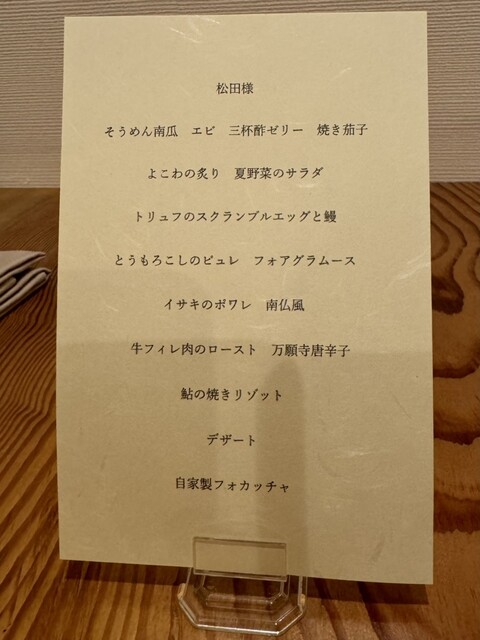 松田様
そうめん南瓜　エビ　三杯酢ゼリー　焼き茄子
よこわの炙り　夏野菜のサラダ
トリュフのスクランブルエッグと鰻
とうもろこしのピュレ　フォアグラムース
イサキのポワレ　南仏風
牛フィレ肉のロースト　万願寺唐辛子
鮎の焼きリゾット
デザート
自家製フォカッチャ